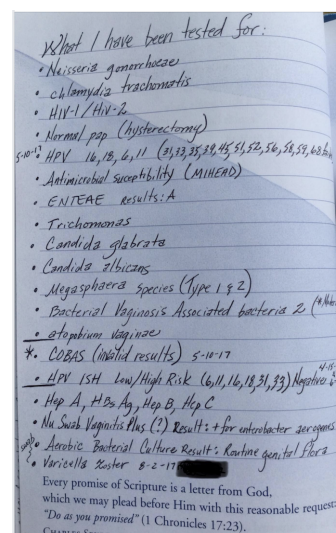 What I have been tested for:
• Neisseria gonorrhoeae
• chlamydia trachomatis
• HIV-1 / HIV-2
• Normal pap (hysterectomy)
5-10-17 • HPV 16, 18, 6, 11 (31,33,35,39,45,51,52,56,58,59,68
• Antimicrobial Suceptibility (MIHEAD)
• ENTEAE results: A
• Trichomonas
• Candida glabrata
• Candida albicans
• Megasphaera species (Type 1 & 2)
• Bacterial Vaginosis Associated bacteria 2
• atopobium vaginae
*• COBAS (invalid results) 5-10-17
• HPV ISH Low/High Risk (6,11,16,18,31,33) Negative
• Hep A, HBs Ag, Hep B, Hep C
• Nu Swab Vaginitis Plus (?) Result: + for enterobacter aerogens
• Aerobic Bacterial Culture Result: Routine genital flora
• Varicella Zoster 8-2-17
Every promise of Scripture is a letter from God,
which we may plead before Him with this reasonable request:
"Do as you promised" (1 Chronicles 17:23).